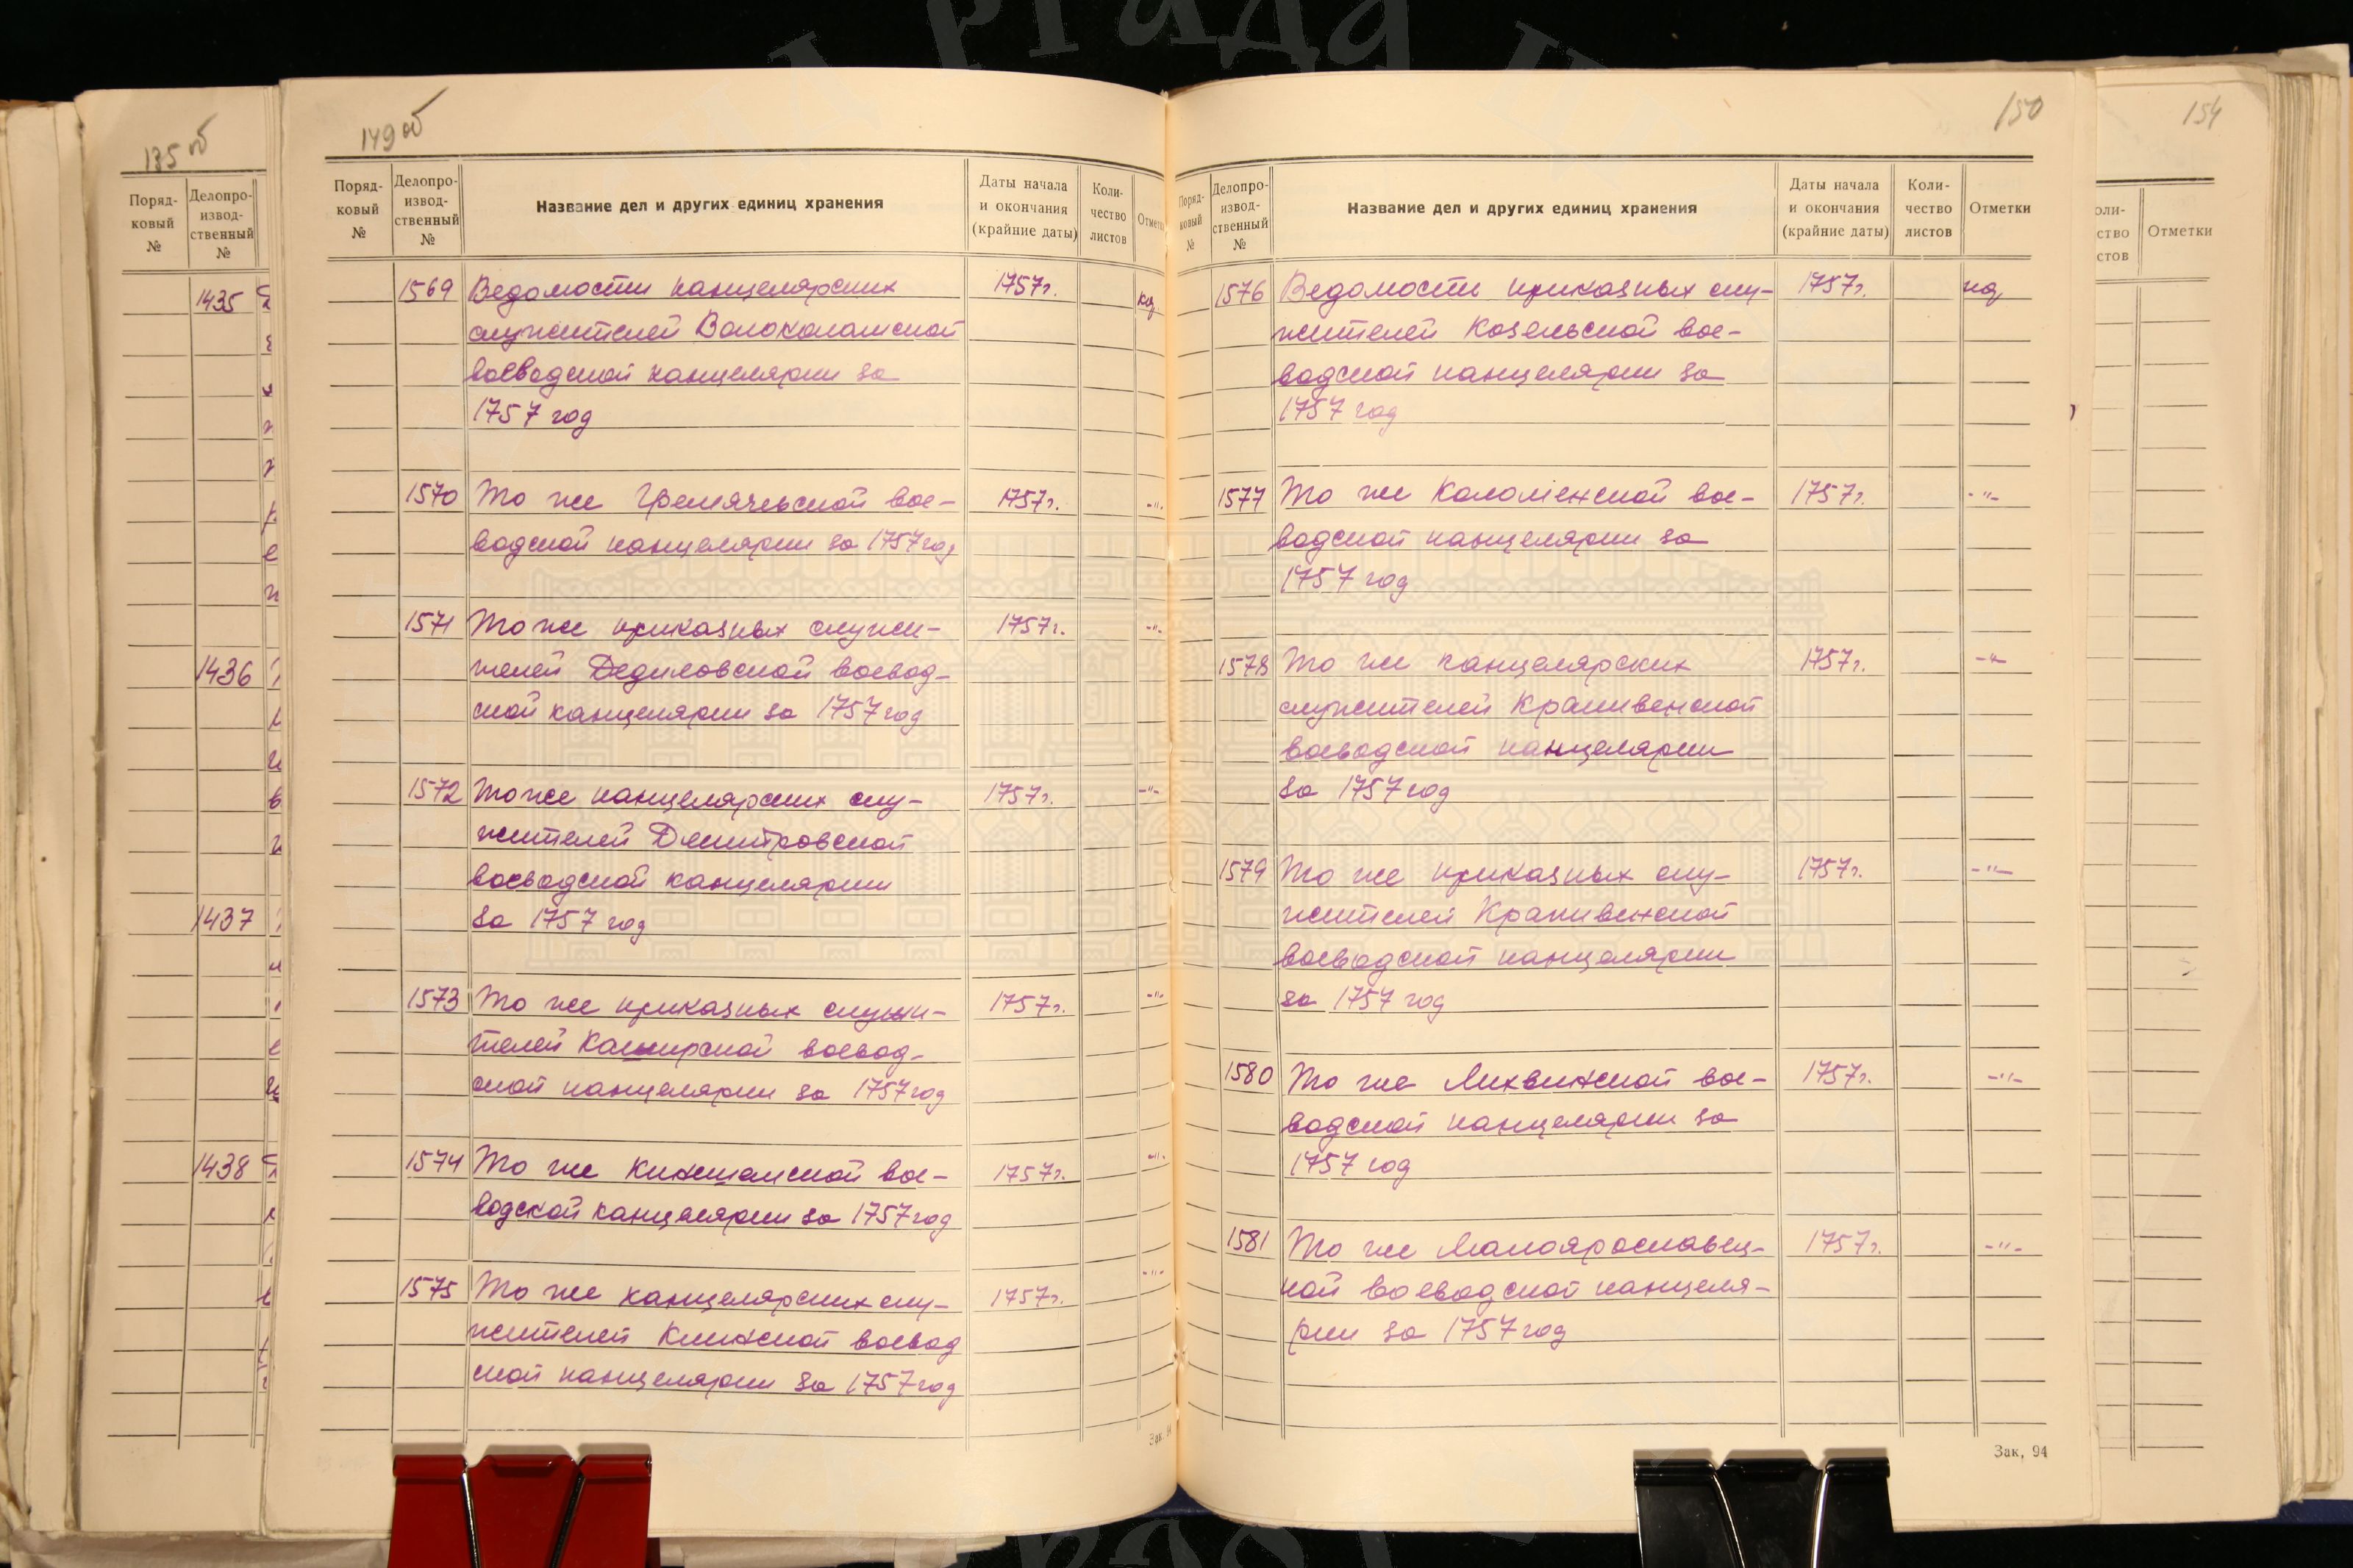 135 об
Поряд-
ковый
№
Делопро-
извод-
ственный
№
1435
1436
1437
1438
149 об
Поряд-
ковый
№
Делопро-
извод-
ственный
№
Название дел и других единиц хранения
Даты начала
и окончания
(крайние даты)
Коли-
чество
листов
Отметки
1569 Ведомости канцелярских 1757 г.
служителей Волоколамской
воеводской канцелярии за
1757 год
1570 То же Гремячьской вое- 1757 г. -"-
водской канцелярии за 1757 год
1571 То же приказных служи- 1757 г. -"-
телей Дедиловской воевод-
ской канцелярии за 1757 год
1572 То же канцелярских слу- 1757 г. -"-
жителей Дмитровской
воеводской канцелярии
за 1757 год
1573 То же приказных служи- 1757 г. -"-
телей Каширской воевод-
ской канцелярии за 1757 год
1574 То же Кинешемской вое- 1757 г. -"-
водской канцелярии за 1757 год
1575 То же канцелярских слу- 1757 г. -"-
жителей Клинской воевод
ской канцелярии за 1757 год
Зак.
150
Поряд-
ковый
№
Делопро-
извод-
ственный
№
Название дел и других единиц хранения
Даты начала
и окончания
(крайние даты)
Коли-
чество
листов
Отметки
1576 Ведомости приказных слу- 1757 г.
жителей Козельской вое-
водской канцелярии за
1757 год
1577 То же Коломенской вое- 1757 г. -"-
водской канцелярии за
1757 год
1578 То же канцелярских 1757 г. -"-
служителей Крапивенской
воеводской канцелярии
за 1757 год
1579 То же приказных слу- 1757 г. -"-
жителей Крапивенской
воеводской канцелярии
за 1757 год
1580 То же Лихвинской вое- 1757 г. -"-
водской канцелярии за
1757 год
1581 То же Малоярославец- 1757 г. -"-
кой воеводской канцеля-
рии за 1757 год
Зак, 94
154
оли-
ство
стов
Отметки